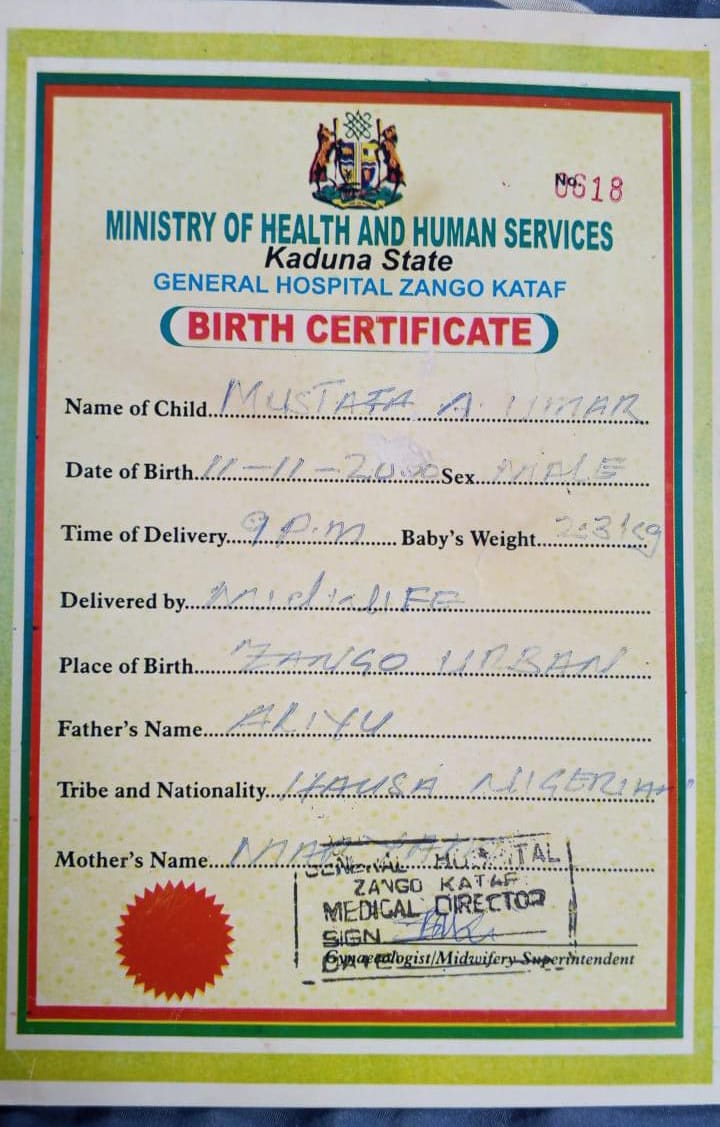 No 0618
MINISTRY OF HEALTH AND HUMAN SERVICES
Kaduna State
GENERAL HOSPITAL ZANGO KATAF
BIRTH CERTIFICATE
Name of Child MUSTAFA A. UMAR
Date of Birth 11-11-2000 Sex MALE
Time of Delivery 9 P.m Baby's Weight 2.3 kg
Delivered by
Place of Birth ZANGO URBAN
Father's Name ALIYU
Tribe and Nationality HAUSA NIGERIAN
Mother's Name
GENERAL HOSPITAL
ZANGO KATAF
MEDICAL DIRECTOR
SIGN
DATE
Gynaecologist/Midwifery Superintendent